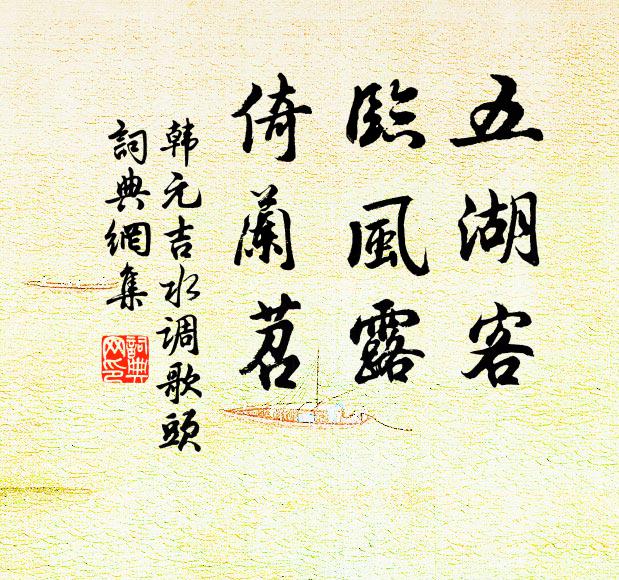 五湖客
臨風露
倚蘭苕
韩元吉水调歌頭
詞典網集
詞典
网印